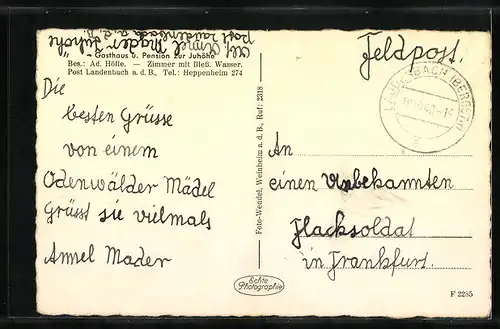 Abs. Annel Mader Juhöhe
Post Laudenbach a. d. B.
Gasthaus u. Pension zur Juhöhe
Bes.: Ad. Höfle. — Zimmer mit fließ. Wasser.
Post Laudenbach a. d. B., Tel.: Heppenheim 274
Feldpost.
LAUDENBACH (BERGSTR)
Die
besten Grüsse
von einem
Odenwälder Mädel
Grüsst sie vielmals
Annel Mader
Foto-Wendel, Weinheim a. d. B., Ruf: 2318
An
einen Unbekannten
Flacksoldat
in Frankfurt.
Echte
Photographie
F 2285